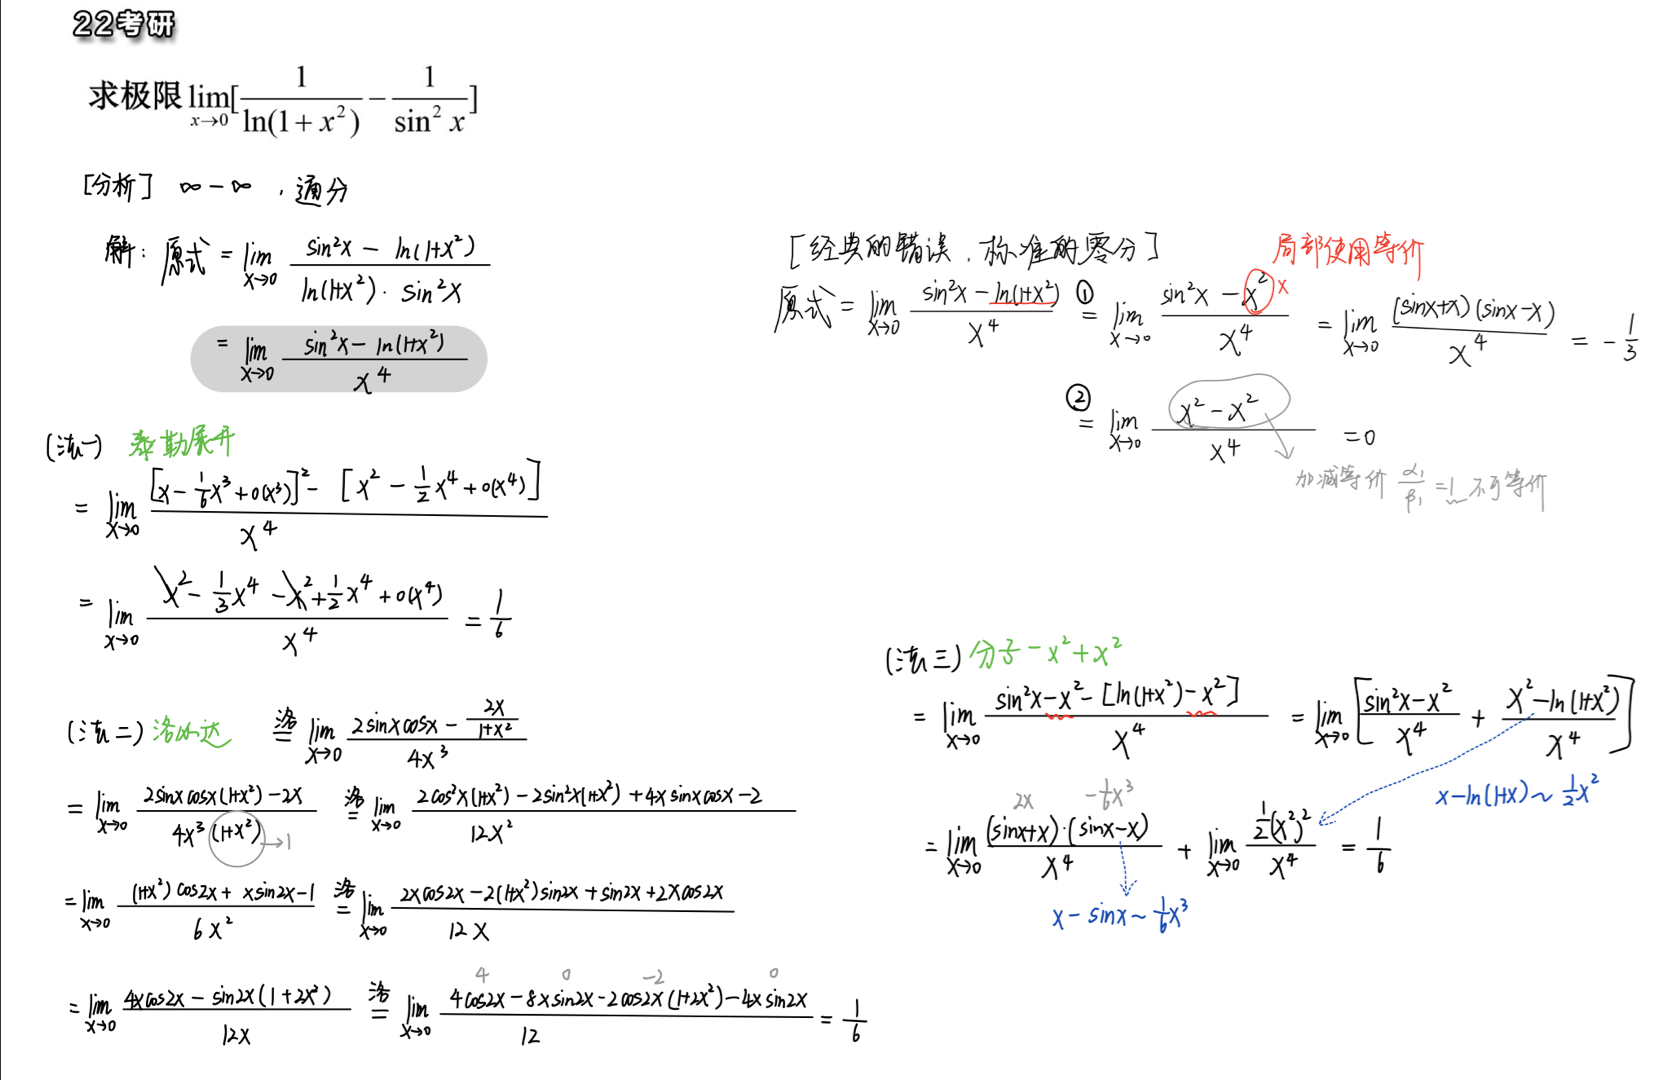 22考研
求极限 lim_{x→0} [ 1/ln(1+x²) − 1/sin² x ]
[分析] ∞−∞ , 通分
解: 原式 = lim_{x→0} (sin²x − ln(1+x²)) / (ln(1+x²)·sin²x)
= lim_{x→0} (sin²x − ln(1+x²)) / x⁴
(法一) 泰勒展开
= lim_{x→0} ([x − 1/6 x³ + o(x³)]² − [x² − 1/2 x⁴ + o(x⁴)]) / x⁴
= lim_{x→0} (x² − 1/3 x⁴ − x² + 1/2 x⁴ + o(x⁴)) / x⁴ = 1/6
(法二) 洛必达 洛= lim_{x→0} (2sinxcosx − 2x/(1+x²)) / 4x³
= lim_{x→0} (2sinxcosx(1+x²) − 2x) / (4x³(1+x²)) →1 洛= lim_{x→0} (2cos²x(1+x²) − 2sin²x(1+x²) + 4xsinxcosx − 2) / 12x²
= lim_{x→0} ((1+x²)cos2x + xsin2x − 1) / 6x² 洛= lim_{x→0} (2xcos2x − 2(1+x²)sin2x + sin2x + 2xcos2x) / 12x
4 0 −2 0
= lim_{x→0} (4xcos2x − sin2x(1+2x²)) / 12x 洛= lim_{x→0} (4cos2x − 8xsin2x − 2cos2x(1+2x²) − 4xsin2x) / 12 = 1/6
[经典的错误, 标准的零分] 局部使用等价
原式 = lim_{x→0} (sin²x − ln(1+x²)) / x⁴ ①= lim_{x→0} (sin²x − x²) / x⁴ × = lim_{x→0} (sinx+x)(sinx−x) / x⁴ = −1/3
②= lim_{x→0} (x² − x²) / x⁴ = 0
加减等价 α₁/β₁ = 1 不可等价
(法三) 分子 −x²+x²
= lim_{x→0} (sin²x − x² − [ln(1+x²) − x²]) / x⁴ = lim_{x→0} [ (sin²x − x²)/x⁴ + (x² − ln(1+x²))/x⁴ ]
x − ln(1+x) ~ 1/2 x²
2x −1/6 x³
= lim_{x→0} (sinx+x)·(sinx−x) / x⁴ + lim_{x→0} 1/2 (x²)² / x⁴ = 1/6
x − sinx ~ 1/6 x³